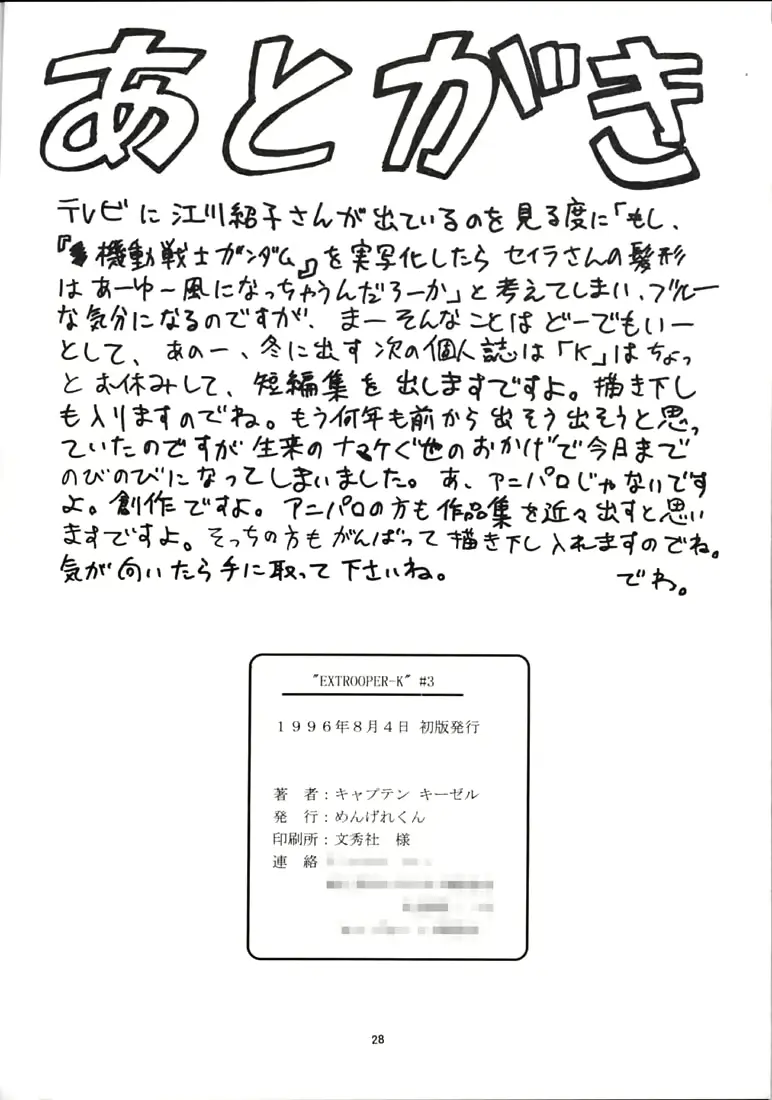 あとがき
テレビに江川紹子さんが出ているのを見る度に「もし、
『機動戦士ガンダム』を実写化したらセイラさんの髪形
はあーゆー風になっちゃうんだろーか」と考えてしまい、ブルー
な気分になるのですが、まーそんなことはどーでもいー
として、あのー、冬に出す次の個人誌は「K」はちょっ
とお休みして、短編集を出しますですよ。描き下し
も入りますのでね。もう何年も前から出そう出そうと思っ
ていたのですが生来のナマケぐせのおかげで今日まで
のびのびになってしまいました。あ、アニパロじゃないです
よ。創作ですよ。アニパロの方も作品集を近々出すと思い
ますですよ。そっちの方もがんばって描き下し入れますのでね。
気が向いたら手に取って下さいね。
でわ。
"EXTROOPER-K" #3
１９９６年８月４日 初版発行
著　者：キャプテン キーゼル
発　行：めんげれくん
印刷所：文秀社　様
連　絡
28